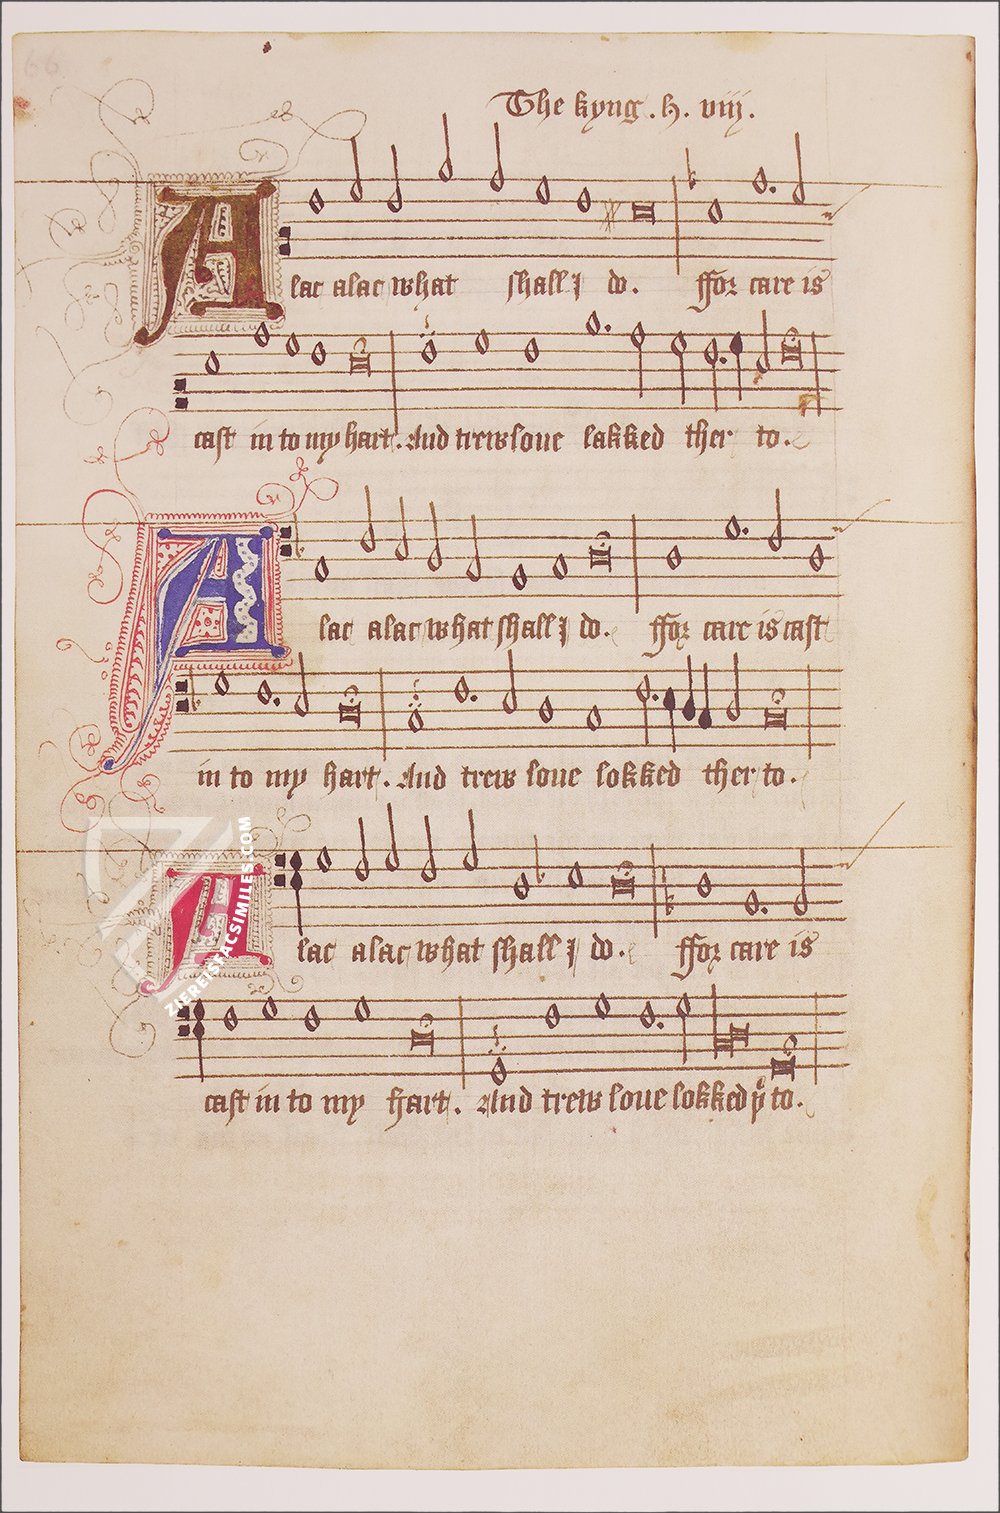 66
The kyng . h . viij .
Alac alac what shall I do . ffor care is
cast in to my hart . And trew loue lokked ther to .
Alac alac what shall I do . ffor care is cast
in to my hart . And trew loue lokked ther to .
Alac alac what shall I do . ffor care is
cast in to my hart . And trew loue lokked þr to .
ZIEREISFACSIMILES.COM